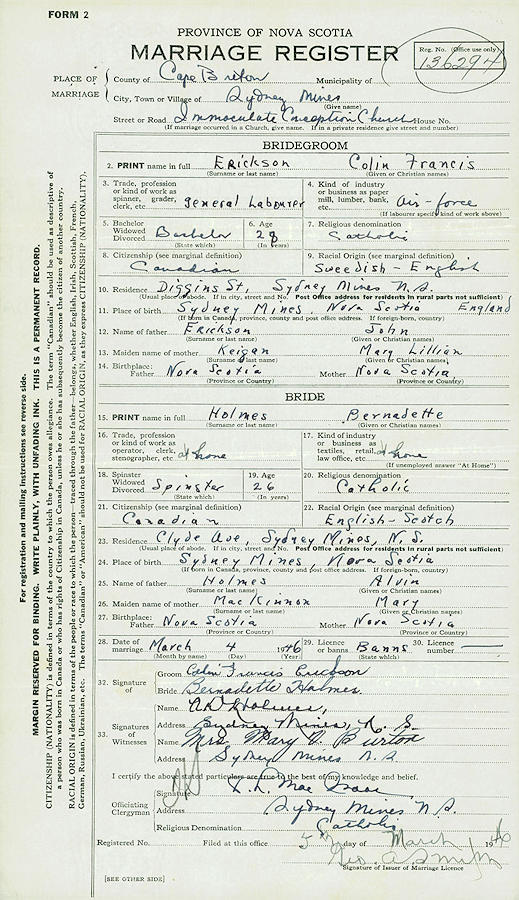 FORM 2
PROVINCE OF NOVA SCOTIA
MARRIAGE REGISTER
Reg. No. (Office use only)
136294
PLACE OF MARRIAGE
County of Cape Breton Municipality of
City, Town or Village of Sydney Mines
(Give name)
Street or Road Immaculate Conception Church House No.
(If marriage occurred in a Church, give name. If in a private residence give street and number)
BRIDEGROOM
2. PRINT name in full Erickson Colin Francis
(Surname or last name) (Given or Christian names)
3. Trade, profession or kind of work as spinner, grader, clerk, etc. general Labourer
4. Kind of industry or business as paper mill, lumber, bank, etc. Air-force
(If labourer specify kind of work above)
5. Bachelor Widowed Divorced Bachelor
(State which)
6. Age 28
(In years)
7. Religious denomination Catholic
8. Citizenship (see margin) Canadian
9. Racial Origin (see margin) Sweedish - English
10. Residence Diggins St, Sydney Mines N.S.
(Usual place of abode. If in city, street and No. Post Office address for residents in rural parts not sufficient)
11. Place of birth Sydney Mines, Nova Scotia England
(If born in Canada, province, county and post office address. If foreign-born, country)
12. Name of father Erickson John
(Surname or last name) (Given or Christian names)
13. Maiden name of mother Keigan Mary Lillian
(Surname or last name) (Given or Christian names)
14. Birthplace: Father Nova Scotia Mother Nova Scotia
(Province or Country) (Province or Country)
BRIDE
15. PRINT name in full Holmes Bernadette
(Surname or last name) (Given or Christian names)
16. Trade, profession or kind of work as operator, clerk, stenographer, etc. at home
17. Kind of industry or business as textiles, retail, law office, etc. at home
(If unemployed answer "At Home")
18. Spinster Widowed Divorced Spinster
(State which)
19. Age 26
(In years)
20. Religious denomination Catholic
21. Citizenship (see margin) Canadian
22. Racial Origin (see margin) English-Scotch
23. Residence Clyde Ave, Sydney Mines, N.S.
(Usual place of abode. If in city, street and No. Post Office address for residents in rural parts not sufficient)
24. Place of birth Sydney Mines Nova Scotia
(If born in Canada, province, county and post office address. If foreign-born, country)
25. Name of father Holmes Alvin
(Surname or last name) (Given or Christian names)
26. Maiden name of mother MacKinnon Mary
(Surname or last name) (Given or Christian names)
27. Birthplace: Father Nova Scotia Mother Nova Scotia
(Province or Country) (Province or Country)
28. Date of marriage March 4 1946
(Month by name) (Day) (Year)
29. Licence or Banns Banns
30. Licence number
32. Signature of
Groom Colin Francis Erickson
Bride Bernadette Holmes.
33. Signatures of Witnesses
Name Holmes,
Address Sydney Mines, N.S.
Name Mrs. Mary V. Burton
Address Sydney Mines N.S.
I certify the above stated particulars are true to the best of my knowledge and belief.
Officiating Clergyman
Signature Mac Isaac
Address Sydney Mines N.S.
Religious Denomination Catholic
Registration No. Filed at this office 5th day of March 1946
Geo. A. Smith
Signature of Issuer of Marriage Licence
[SEE OTHER SIDE]
For registration and mailing instructions see reverse side.
MARGIN RESERVED FOR BINDING. WRITE PLAINLY, WITH UNFADING INK. THIS IS A PERMANENT RECORD.
CITIZENSHIP (NATIONALITY) is defined in terms of the country to which the person owes allegiance. The term "Canadian" should be used as descriptive of
a person who was born in Canada or who has rights of Citizenship in Canada, unless he or she has subsequently become the citizen of another country.
RACIAL ORIGIN is defined in terms of the people or race to which the person—traced through the father—belongs, whether English, Irish, Scottish, French,
German, Russian, Ukrainian, etc. The terms "Canadian" or "American" should not be used for RACIAL ORIGIN, as they express CITIZENSHIP (NATIONALITY).